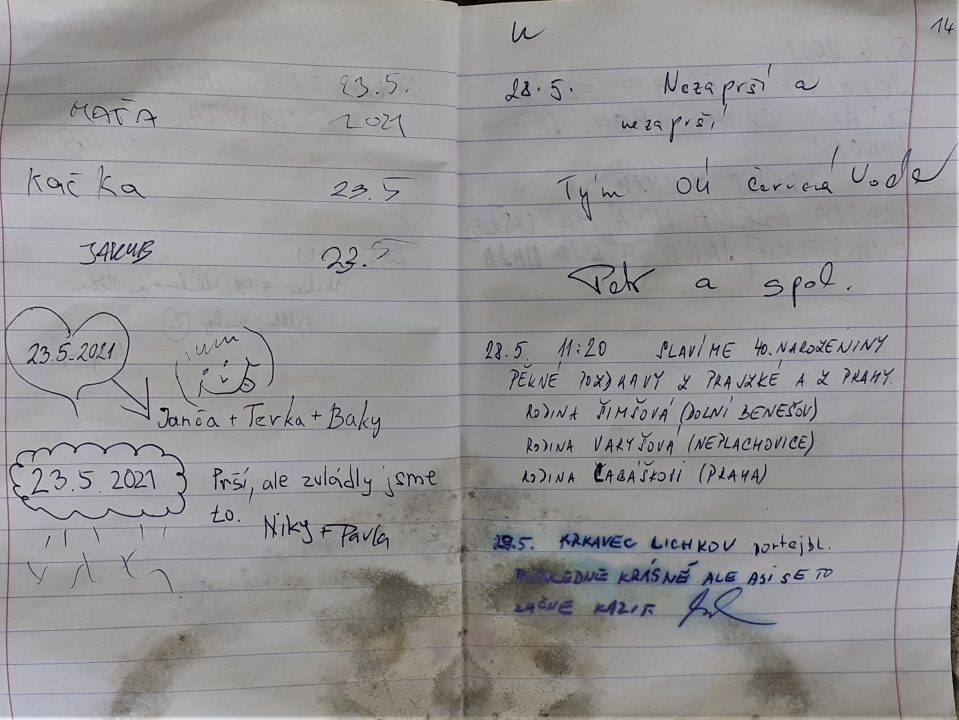 23.5.
MAŤA 2021
Kačka 23.5
JAKUB 23.5
23.5.2021
Janča + Terka + Baky
23.5.2021
Prší, ale zvládly jsme
to.
Niky + Pavla
14
28.5. Nezaprší a
nezaprší
Tým OÚ Červená Voda
Petr a spol.
28.5. 11:20 SLAVÍME 40. NAROZENINY
PĚKNÉ POZDRAVY Z PRAJZKÉ A Z PRAHY.
RODINA ŠIMŠOVÁ (DOLNÍ BENEŠOV)
RODINA VARYŠOVÁ (NEPLACHOVICE)
RODINA LABÁŠKOVI (PRAHA)
28.5. KRKAVEC LICHKOV
KRÁSNĚ ALE ASI SE TO
ZAČNE KAZIT